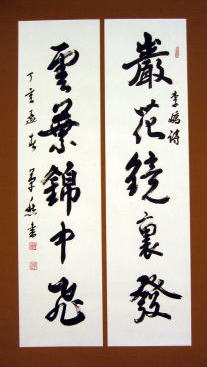 巖花鏡裏發
李嶠詩
雲葉錦中飛
丁亥孟春